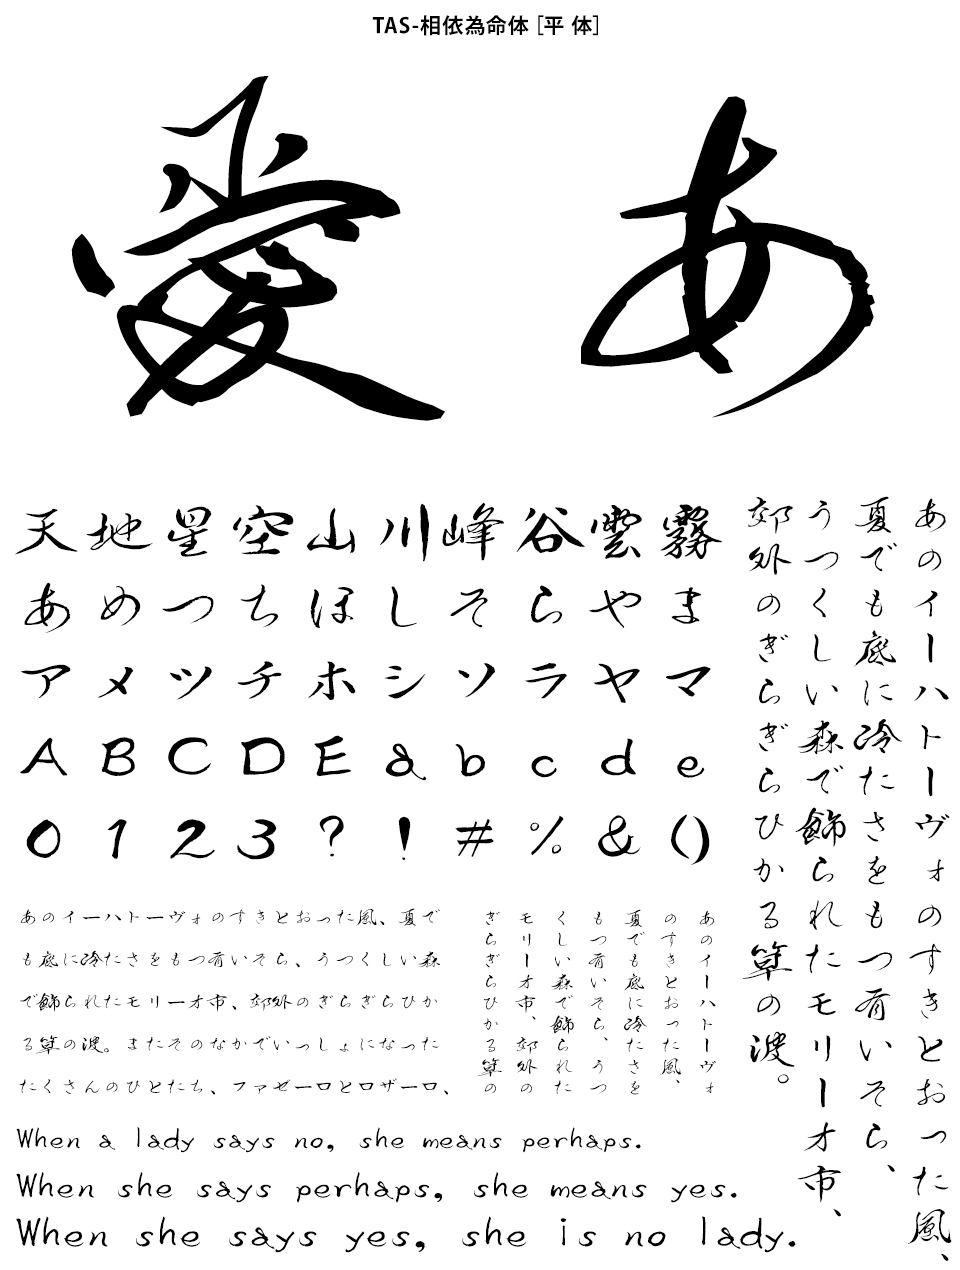 TAS-相依為命体［平 体］
愛 あ
天地星空山川峰谷雲霧
あめつちほしそらやま
アメツチホシソラヤマ
ABCDEabcde
0123?!#%&()
あのイーハトーヴォのすきとおった風、
夏でも底に冷たさをもつ青いそら、
うつくしい森で飾られたモリーオ市、
郊外のぎらぎらひかる草の波。
あのイーハトーヴォのすきとおった風、夏で
も底に冷たさをもつ青いそら、うつくしい森
で飾られたモリーオ市、郊外のぎらぎらひか
る草の波。またそのなかでいっしょになった
たくさんのひとたち、ファゼーロとロザーロ、
あのイーハトーヴォ
のすきとおった風、
夏でも底に冷たさを
もつ青いそら、うつ
くしい森で飾られた
モリーオ市、郊外の
ぎらぎらひかる草の
When a lady says no, she means perhaps.
When she says perhaps, she means yes.
When she says yes, she is no lady.